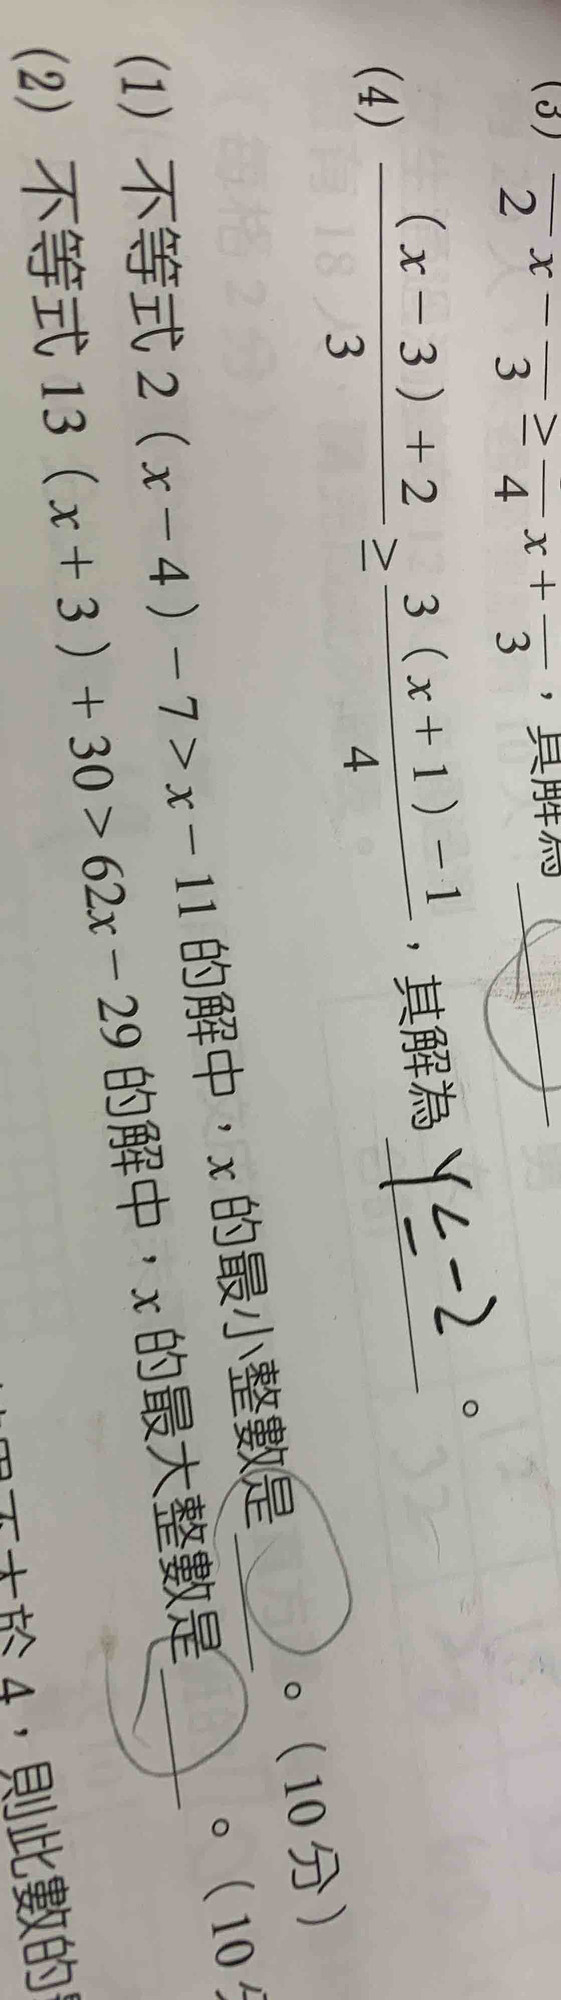 (3) /2 x − /3 ≥ /4 x + /3，其解為
(4) (x−3)+2/3 ≥ 3(x+1)−1/4，其解為 x≤−2。
(1) 不等式 2(x−4)−7>x−11 的解中，x 的最小整數是。(10 分)
(2) 不等式 13(x+3)+30>62x−29 的解中，x 的最大整數是。(10 分
不大於 4，則此數的